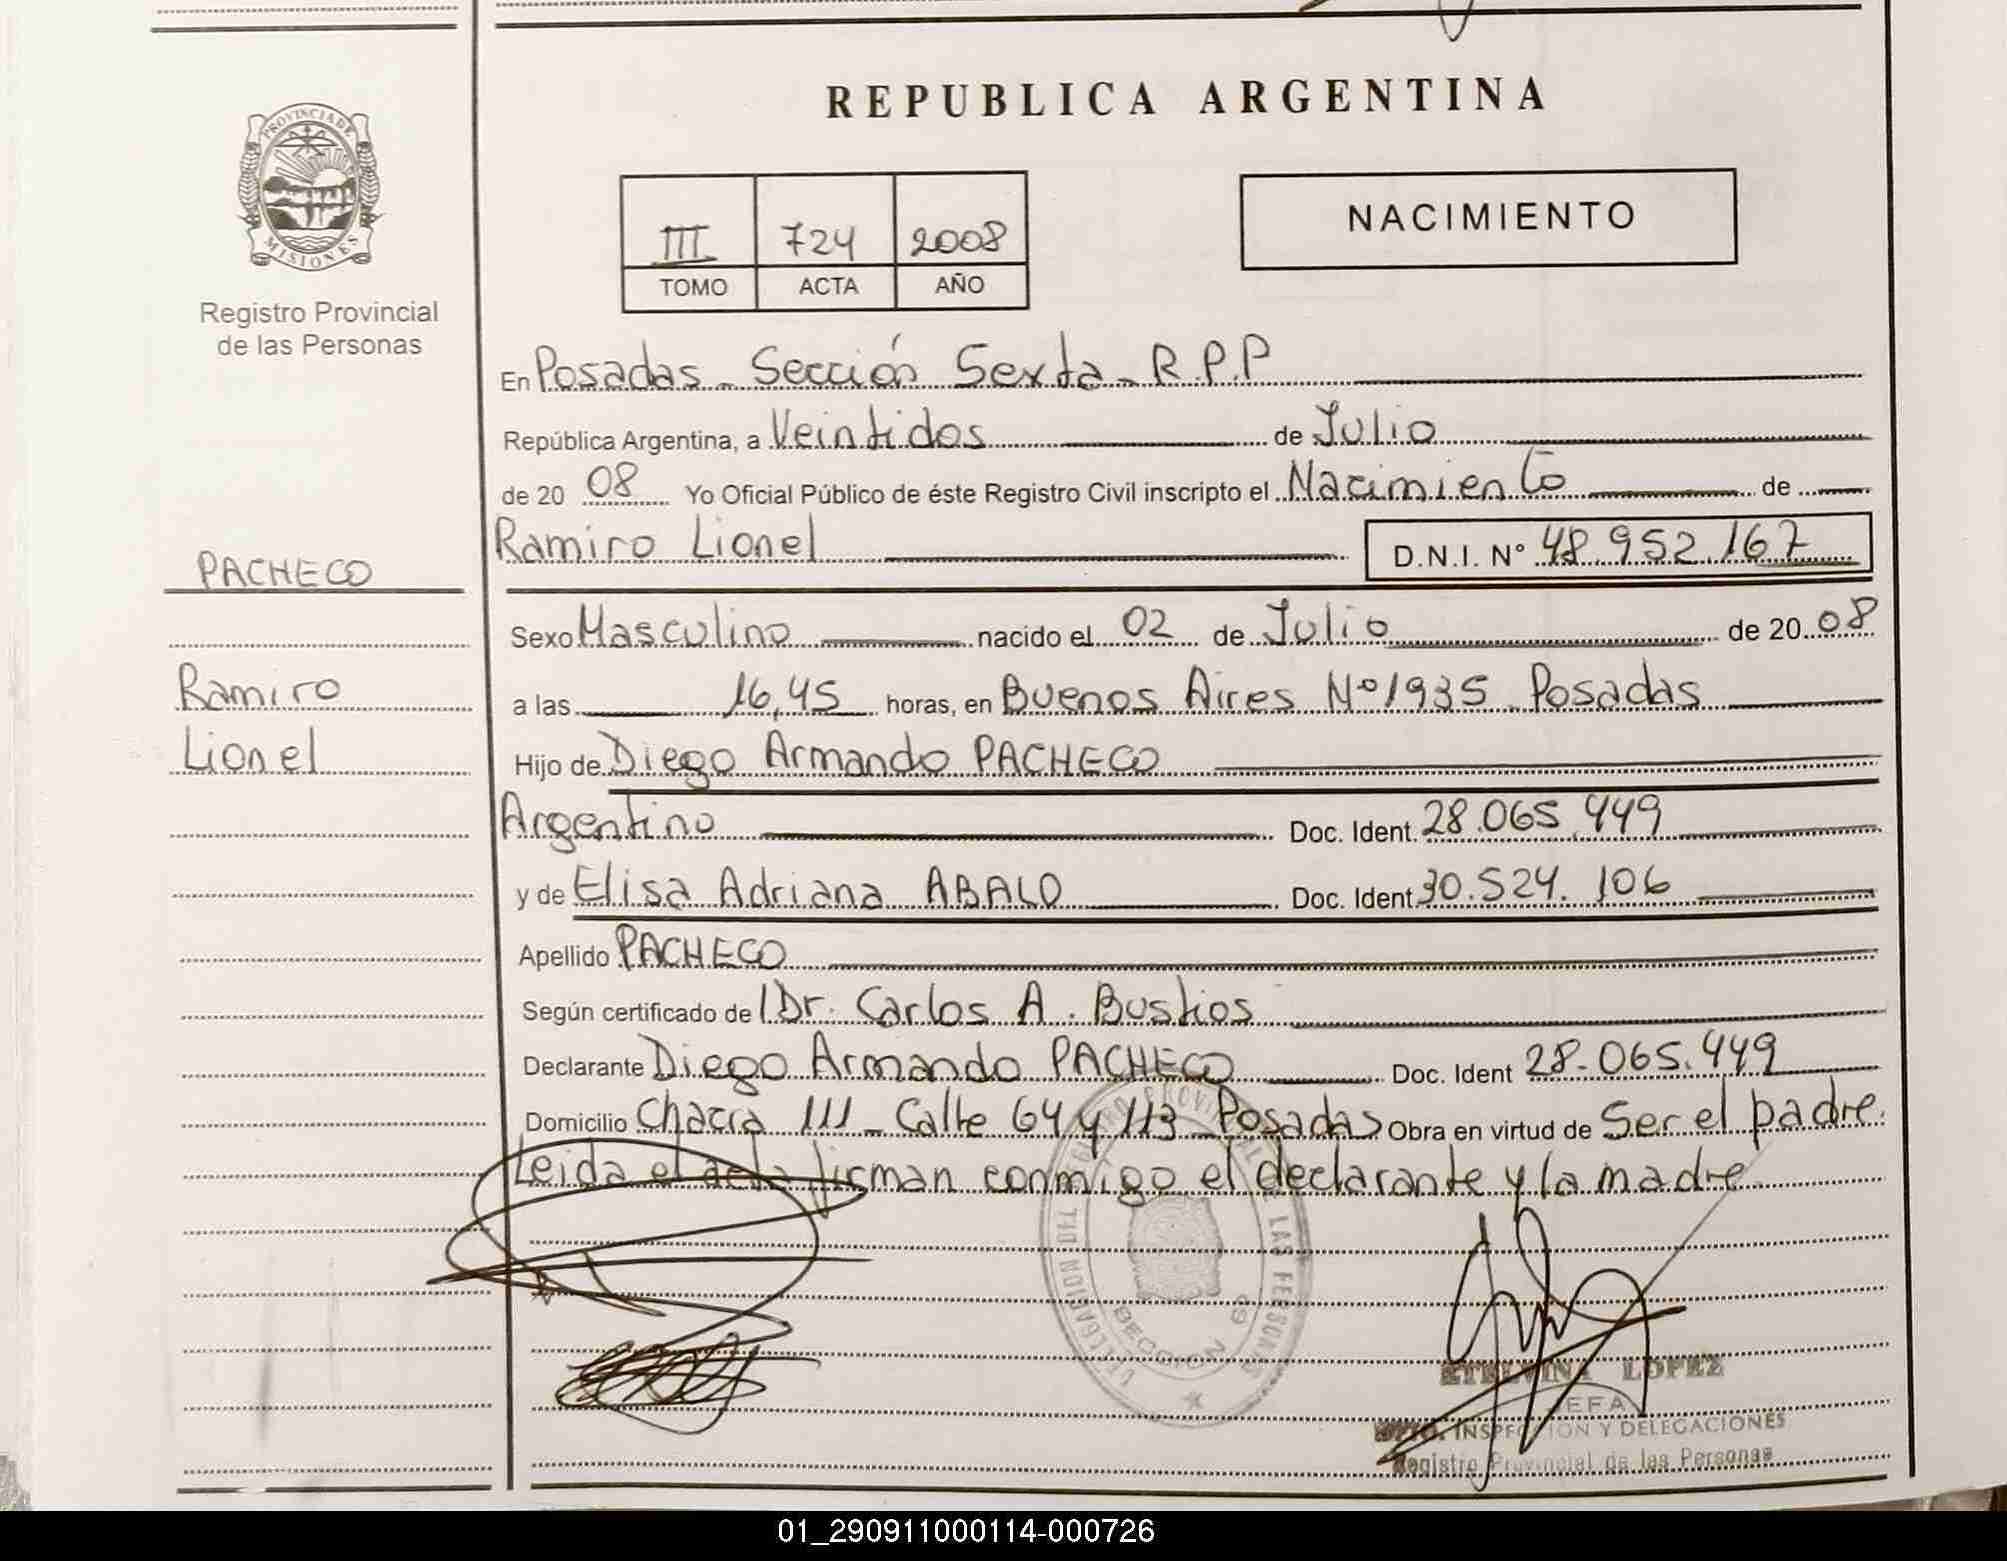 REPUBLICA ARGENTINA
PROVINCIA DE
MISIONES
Registro Provincial
de las Personas
III 724 2008
TOMO ACTA AÑO
NACIMIENTO
En Posadas - Sección Sexta - R.P.P
República Argentina, a Veintidos de Julio
de 20 08 Yo Oficial Público de éste Registro Civil inscripto el Nacimiento de
Ramiro Lionel D.N.I. N° 48.952.167
PACHECO
Ramiro
Lionel
Sexo Masculino nacido el 02 de Julio de 20 08
a las 16,45 horas, en Buenos Aires Nº 1935 - Posadas
Hijo de Diego Armando PACHECO
Argentino Doc. Ident. 28.065.449
y de Elisa Adriana ABALO Doc. Ident 30.524.106
Apellido PACHECO
Según certificado de Dr. Carlos A. Bustios
Declarante Diego Armando PACHECO Doc. Ident 28.065.449
Domicilio Chacra 111 - Calle 64 y 113 - Posadas Obra en virtud de Ser el padre.
Leida el acta firman conmigo el declarante y la madre
DELEGACION DEL REGISTRO PROVINCIAL DE LAS PERSONAS
SECCION 6
ETELVINA LOPEZ
JEFA
DPTO. INSPECCION Y DELEGACIONES
Registro Provincial de las Personas
01_290911000114-000726